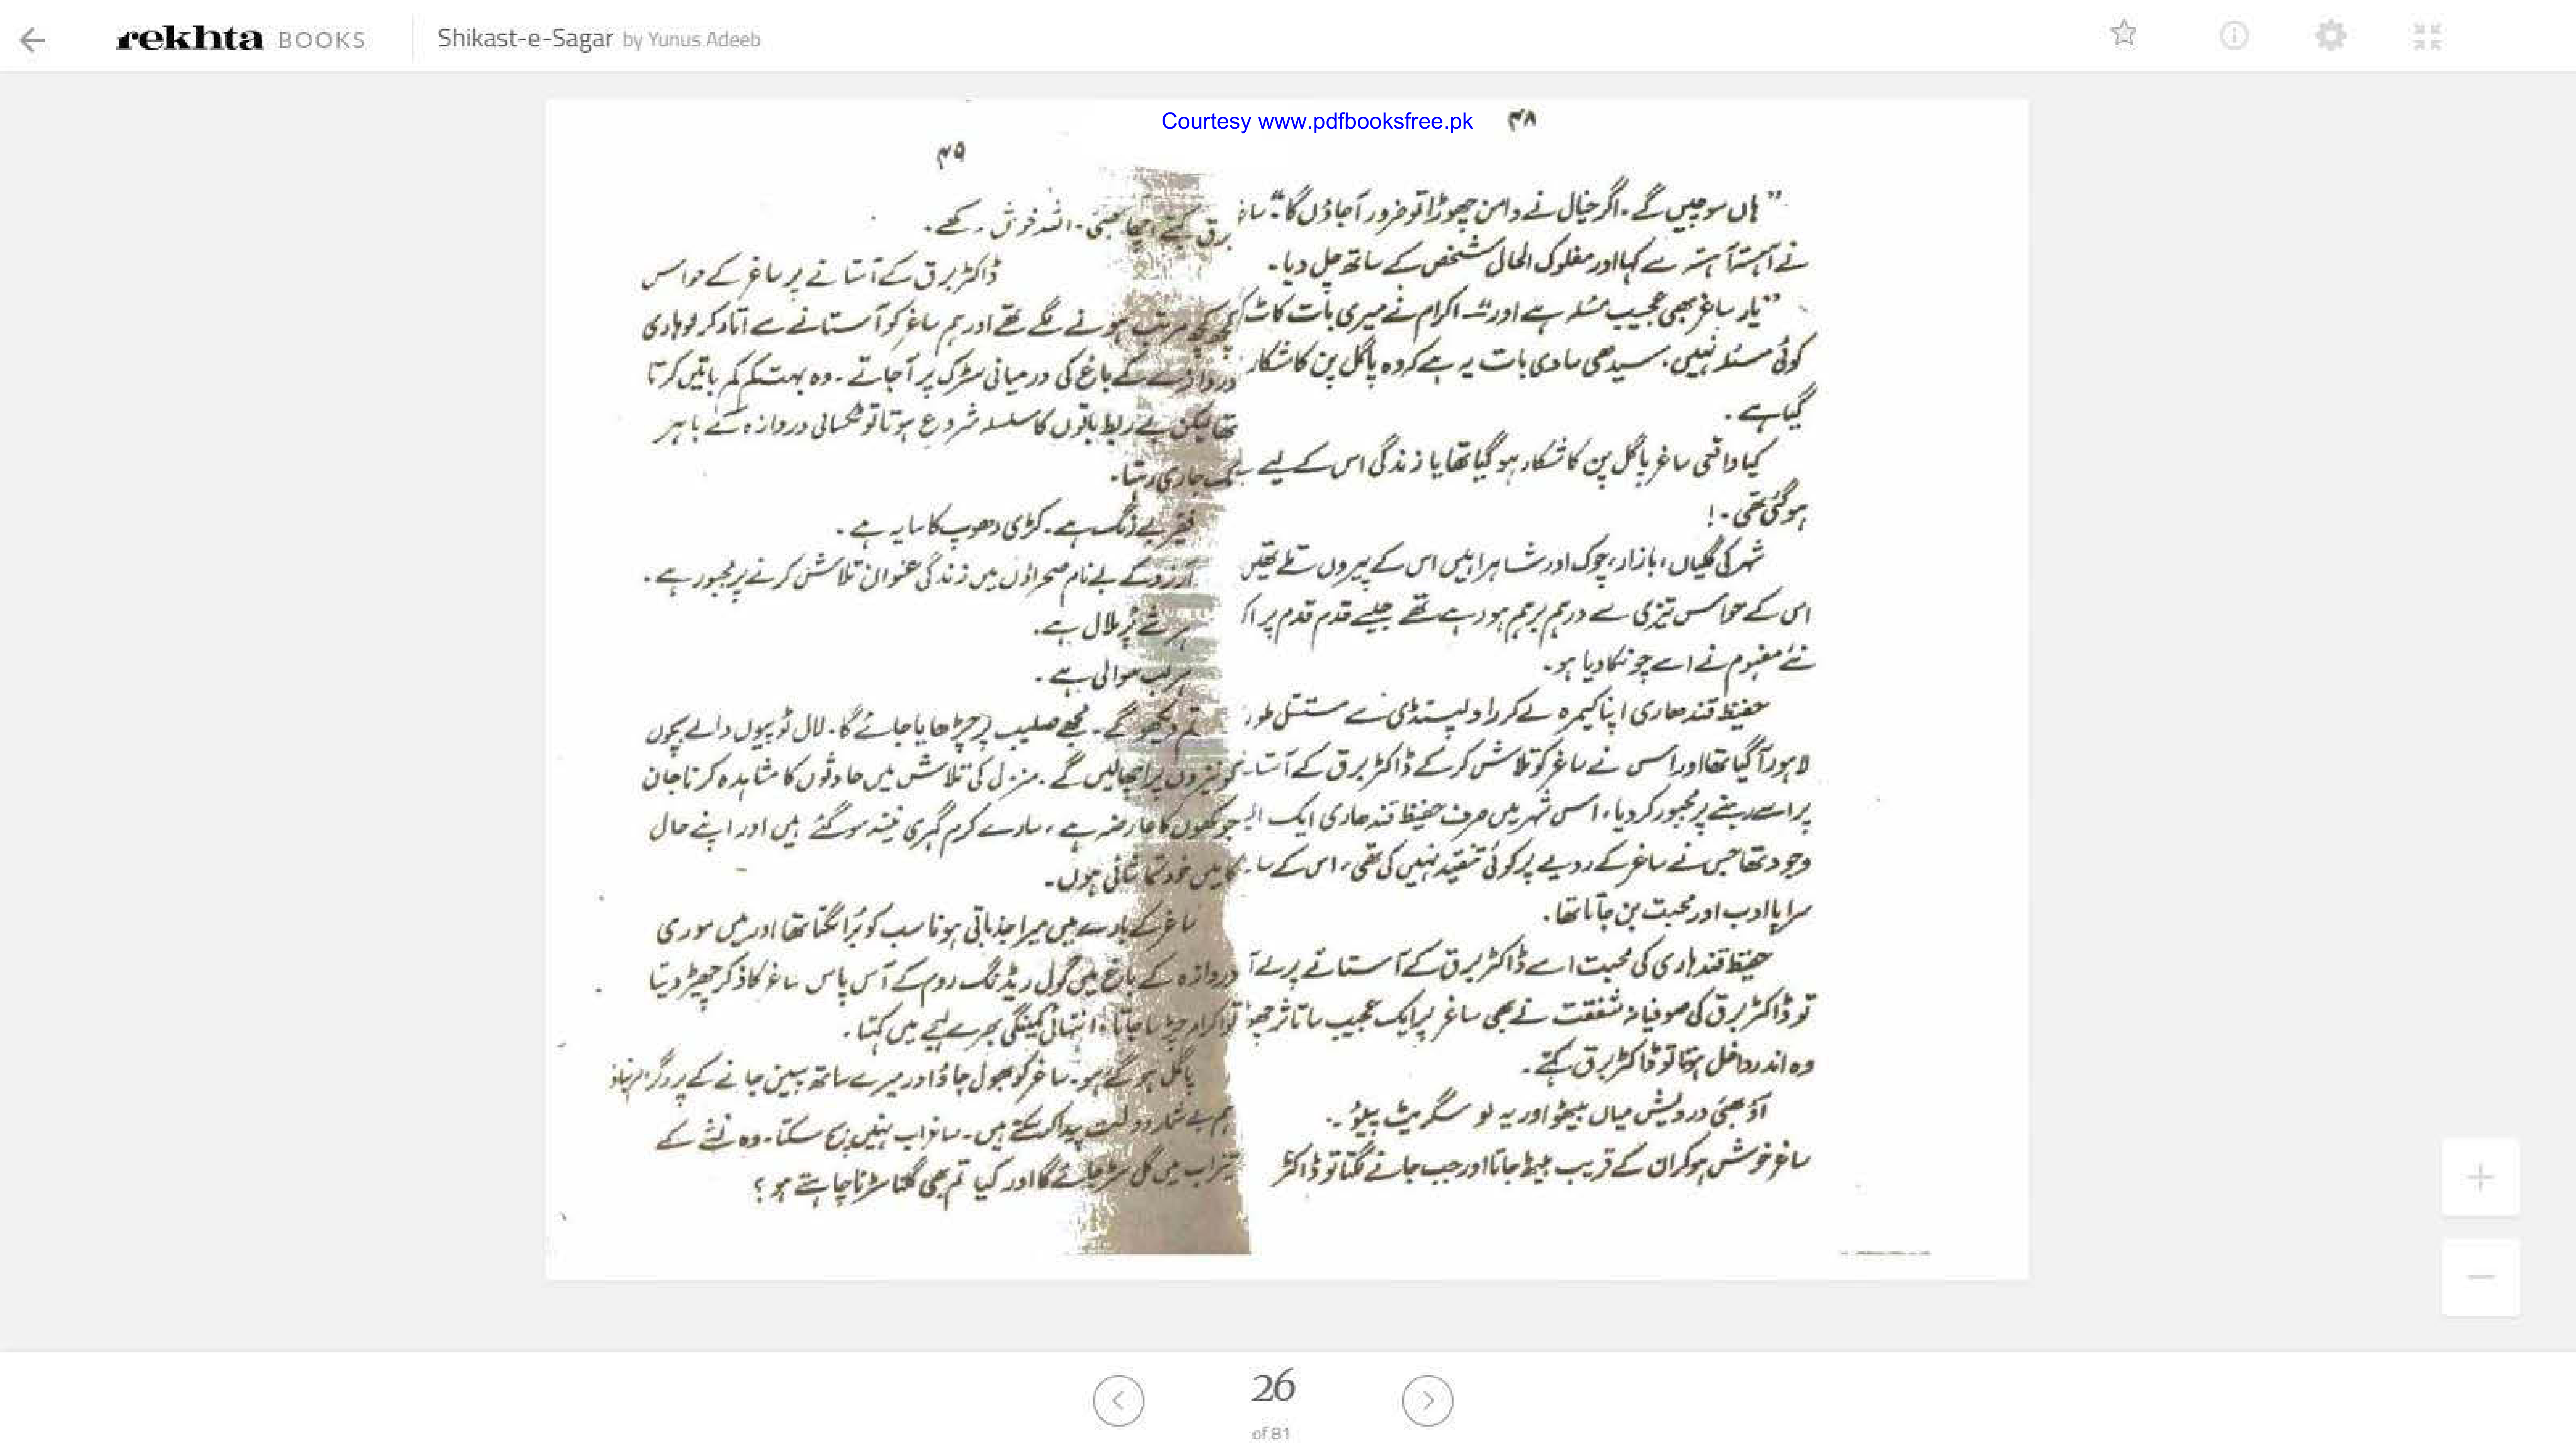 rekhta BOOKS
Shikast-e-Sagar by Yunus Adeeb
Courtesy www.pdfbooksfree.pk
۴۸
"ہاں سوچیں گے۔ اگر خیال نے دامن چھوڑا تو ضرور آجاؤں گا" ساغر
نے آہستہ آہستہ سے کہا اور مفلوک الحال شخص کے ساتھ چل دیا۔
"یار ساغر بھی عجیب مسئلہ ہے اور" اکرام نے میری بات کاٹ
کوئی مسئلہ نہیں، سیدھی سادی بات یہ ہے کہ وہ پاگل پن کا شکار
گیا ہے۔
کیا واقعی ساغر پاگل پن کا شکار ہو گیا تھا یا زندگی اس کے لیے
ہو گئی تھی۔!
شہر کی گلیاں، بازار، چوک اور شاہراہیں اس کے پیروں تلے تھیں
اس کے حواس تیزی سے درہم برہم ہو رہے تھے جیسے قدم قدم پر
نئے مفہوم نے اسے چونکا دیا ہو۔
حفیظ قندھاری اپنا کیمرہ لے کر راولپنڈی سے مستقل طور
لاہور آگیا تھا اور اس نے ساغر کو تلاش کر کے ڈاکٹر برق کے
پر اسے رہنے پر مجبور کر دیا، اس شہر میں صرف حفیظ قندھاری ایک
وجود تھا جس نے ساغر کے رویے پر کوئی تنقید نہیں کی تھی، اس کے
سراپا ادب اور محبت بن جاتا تھا۔
حفیظ قندھاری کی محبت اسے ڈاکٹر برق کے آستانے پر لے
تو ڈاکٹر برق کی صوفیانہ شفقت نے بھی ساغر پر ایک عجیب سا تاثر
وہ اندر داخل ہوتا تو ڈاکٹر برق کہتے۔
آؤ بھئی درویش میاں بیٹھو اور یہ لو سگریٹ پیئو۔
ساغر خوش ہو کر ان کے قریب بیٹھ جاتا اور جب جانے لگتا تو ڈاکٹر
۴۹
برق کہتے اچھا بھئی۔ اللہ خوش رکھے۔
ڈاکٹر برق کے آستانے پر ساغر کے حواس
کچھ کچھ مرتب ہونے لگے تھے اور ہم ساغر کو آستانے سے اتار کر لوہاری
دروازے کے باغ کی درمیانی سڑک پر آجاتے۔ وہ بہت کم کم باتیں کرتا
تھا لیکن بے ربط باتوں کا سلسلہ شروع ہوتا تو ٹکسالی دروازہ کے باہر
تک جاری رہتا۔
فقیر بے رنگ ہے۔ کڑی دھوپ کا سایہ ہے۔
آرزو کے بے نام صحراؤں میں زندگی عنوان تلاش کرنے پر مجبور ہے۔
ہر شے پُر ملال ہے۔
ہر لب سوالی ہے۔
تم دیکھو گے۔ مجھے صلیب پر چڑھایا جائے گا۔ لال ٹوپیوں والے بچوں
کو نیزوں پر اچھالیں گے۔ منزل کی تلاش میں حادثوں کا مشاہدہ کرنا جان
جوکھوں کا عارضہ ہے، سارے کرم گہری نیند سو گئے ہیں اور اپنے حال
کا میں خود تماشائی ہوں۔
ساغر کے بارے میں میرا جذباتی ہونا سب کو بُرا لگتا تھا اور میں موری
دروازہ کے باغ میں گول ریڈنگ روم کے آس پاس ساغر کا ذکر چھیڑ دیتا
تو اکرام چڑ سا جاتا، انتہائی کمینگی بھرے لہجے میں کہتا۔
پاگل ہو گئے ہو۔ ساغر کو بھول جاؤ اور میرے ساتھ سپین جانے کے پروگرام بناؤ
ہم بے شمار دولت پیدا کر سکتے ہیں۔ ساغر اب نہیں بچ سکتا۔ وہ نشے کے
تیزاب میں گل سڑ جائے گا اور کیا تم بھی گلنا سڑنا چاہتے ہو؟
26
of 81